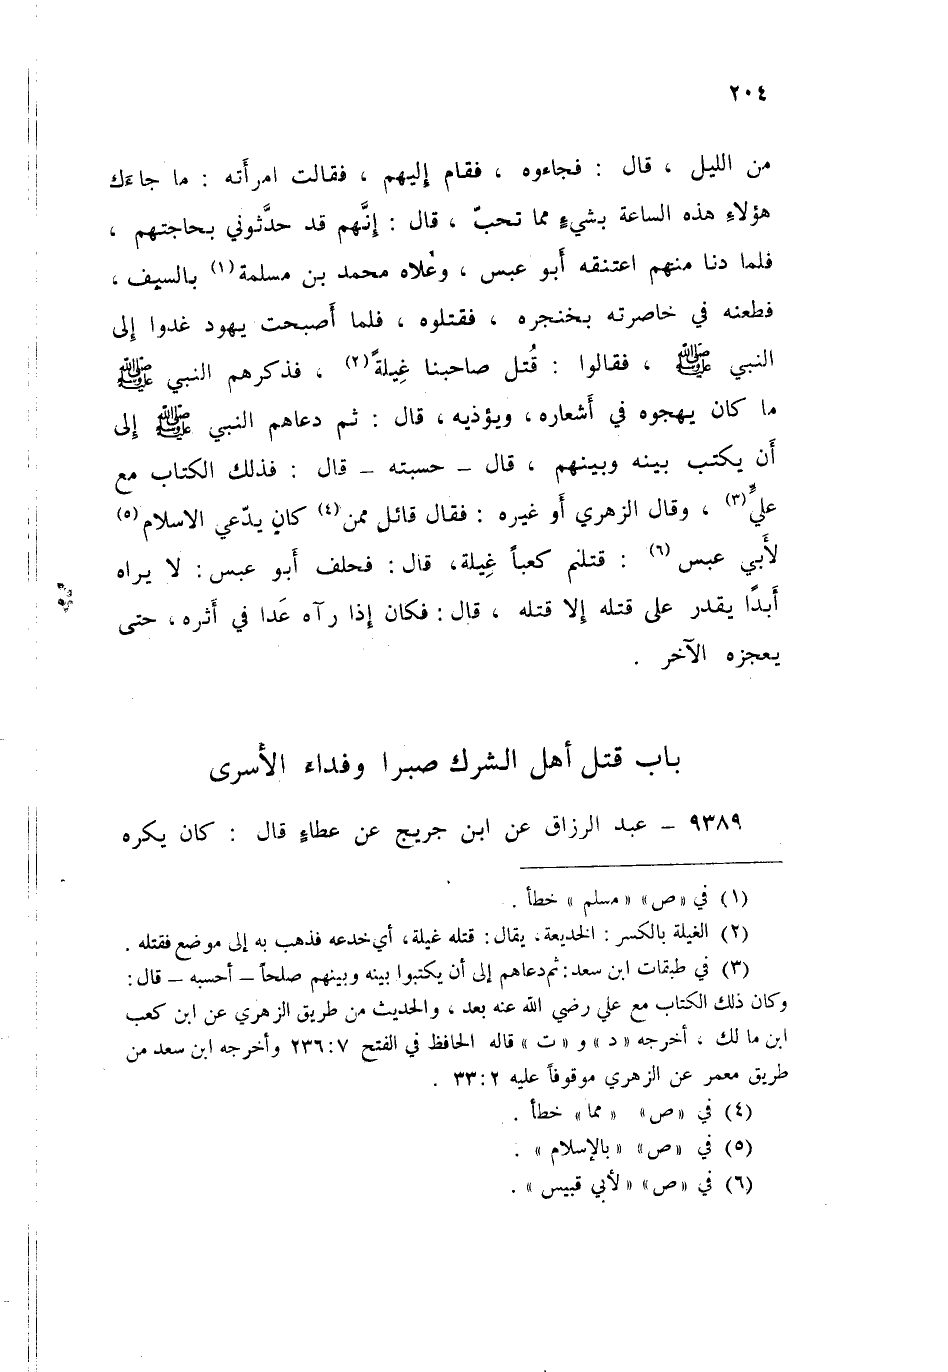 ٢٠٤
من الليل ، قال : فجاءوه ، فقام إليهم ، فقالت امرأته : ما جاءك
هؤلاءِ هذه الساعة بشيءٍ مما تحبّ ، قال : إنَّهم قد حدَّثوني بحاجتهم ،
فلما دنا منهم اعتنقه أَبو عبس ، وعُلاه محمد بن مسلمة(١) بالسيف ،
فطعنه في خاصرته بخنجره ، فقتلوه ، فلما أَصبحت يهود غدوا إلى
النبي ﷺ ، فقالوا : قُتل صاحبنا غِيلةً(٢) ، فذكرهم النبي ﷺ
ما كان يهجوه في أَشعاره ، ويؤذيه ، قال : ثم دعاهم النبي ﷺ إلى
أَن يكتب بينه وبينهم ، قال ـ حسبته ـ قال : فذلك الكتاب مع
عليٍّ(٣) ، وقال الزهري أَو غيره : فقال قائل ممن(٤) كان يدّعي الاسلام(٥)
لأَبي عبس(٦) : قتلتم كعباً غِيلة ، قال : فحلف أَبو عبس : لا يراه
أَبدًا يقدر على قتله إلا قتله ، قال : فكان إذا رآه عَدا في أَثره ، حتى
يعجزه الآخر .
باب قتل أهل الشرك صبرا وفداء الأسرى
٩٣٨٩ ـ عبد الرزاق عن ابن جريج عن عطاءٍ قال : كان يكره
(١) في «ص» «مسلم» خطأ .
(٢) الغيلة بالكسر : الخديعة، يقال: قتله غيلة، أي خدعه فذهب به إلى موضع فقتله .
(٣) في طبقات ابن سعد: ثم دعاهم إلى أن يكتبوا بينه وبينهم صلحاً ـ أحسبه ـ قال :
وكان ذلك الكتاب مع علي رضي الله عنه بعد ، والحديث من طريق الزهري عن ابن كعب
ابن مالك ، أخرجه «د» و «ت» قاله الحافظ في الفتح ٧ : ٢٣٦ وأخرجه ابن سعد من
طريق معمر عن الزهري موقوفاً عليه ٢ : ٣٣ .
(٤) في «ص» «مما» خطأ .
(٥) في «ص» «بالإسلام» .
(٦) في «ص» «لأبي قبيس» .